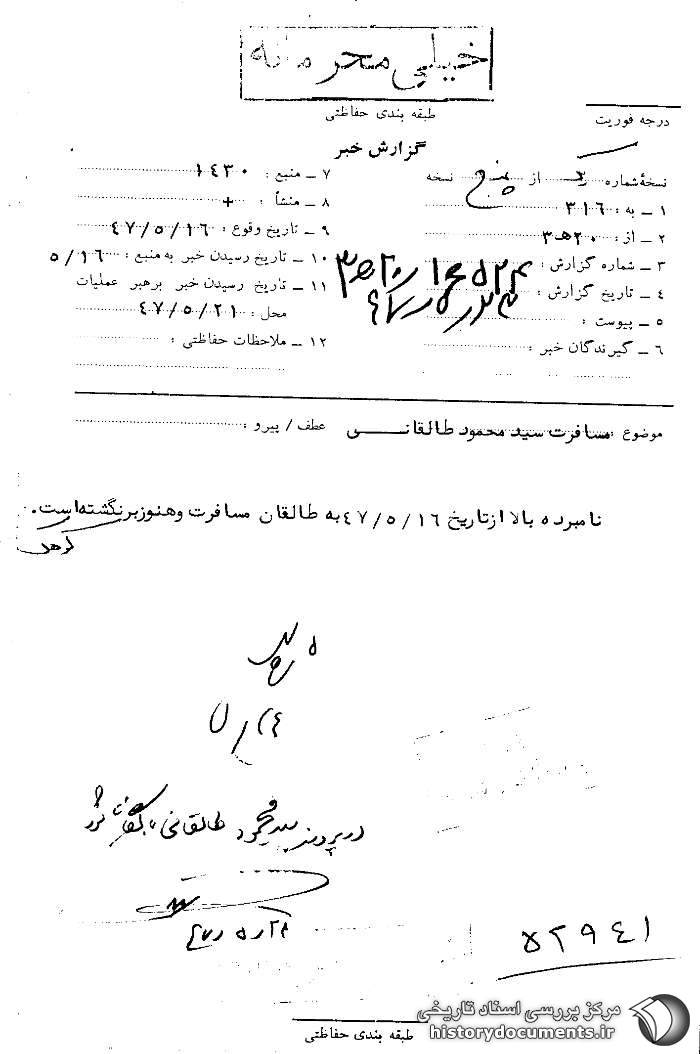 خیلی محرمانه
طبقه بندی حفاظتی
درجه فوریت
گزارش خبر
نسخهٔ شماره ۲ از پنج نسخه
۱ ـ به : ۳۱۶
۲ ـ از : ۲۰هـ۳
۳ ـ شماره گزارش :
۴ ـ تاریخ گزارش :
۵ ـ پیوست :
۶ ـ گیرندگان خبر :
۷ ـ منبع : ۱۴۳۰
۸ ـ منشأ : +
۹ ـ تاریخ وقوع : ۴۷/۵/۱۶
۱۰ ـ تاریخ رسیدن خبر به منبع : ۵/۱۶
۱۱ ـ تاریخ رسیدن خبر برهبر عملیات
محل : ۴۷/۵/۲۱
۱۲ ـ ملاحظات حفاظتی :
موضوع : مسافرت سید محمود طالقانــی
عطف / پیرو :
نامبرده بالا ازتاریخ ۴۷/۵/۱۶ به طالقان مسافرت وهنوزبرنگشته‌است.
در پرونده سید محمود طالقانی بایگانی شود
۲۸ر۵ر۴۷
۵۲۹۴۱
طبقه بندی حفاظتی
مرکز بررسی اسناد تاریخی
historydocuments.ir